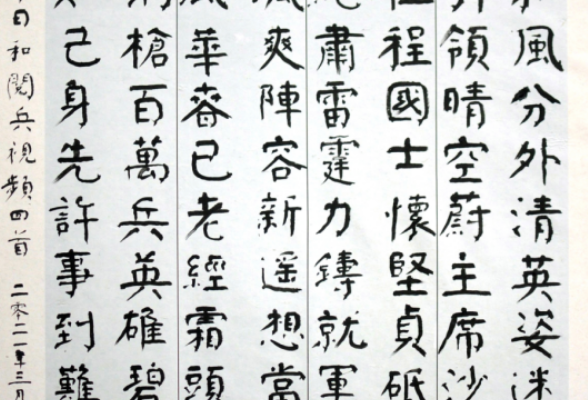 風分外清英姿迷
領晴空蔚主席沙
程國士懷堅貞砥
肅雷霆力鑄就軍
爽陣容新遥想當
華春已老經霜頭
槍百萬兵英雄碧
己身先許事到難
日和閱兵視頻四首 二零二一年三月